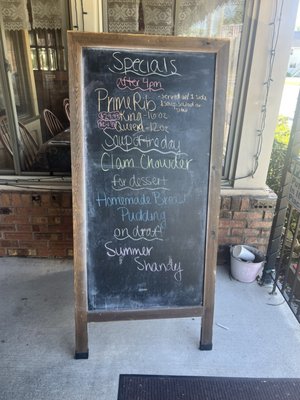 Specials
after 4pm
Prime Rib
-Served w/ 1 side
King - 16oz
Queen - 12oz
Soup of the day
Clam Chowder
for dessert
Homemade Bread
Pudding
on draft
Summer
Shandy